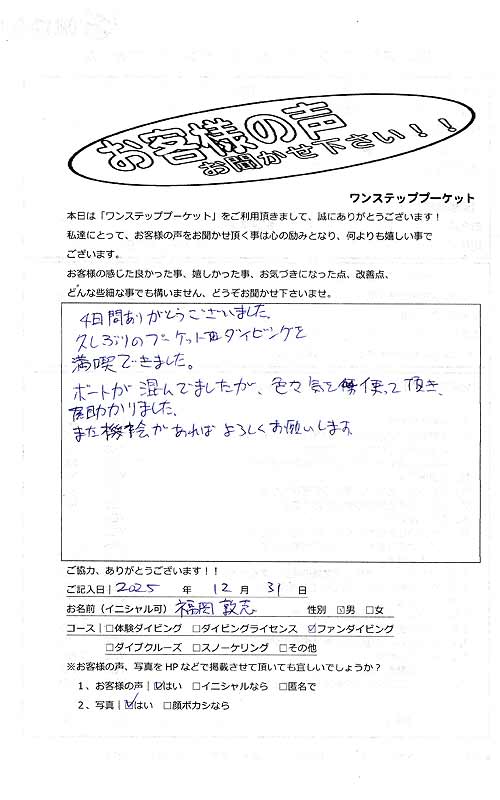 お客様の声
お聞かせ下さい！！
ワンステッププーケット
本日は「ワンステッププーケット」をご利用頂きまして、誠にありがとうございます！
私達にとって、お客様の声をお聞かせ頂く事は心の励みとなり、何よりも嬉しい事で
ございます。
お客様の感じた良かった事、嬉しかった事、お気づきになった点、改善点、
どんな些細な事でも構いません、どうぞお聞かせ下さいませ。
4日間ありがとうございました。
久しぶりのプーケット ダイビングを
満喫できました。
ボートが混んでましたが、色々気を使って頂き、
助かりました。
また機会があればよろしくお願いします。
ご協力、ありがとうございます！！
ご記入日 | 2025 年 12 月 31 日
お名前（イニシャル可） 福岡 敦志 性別 ☑男 □女
コース | □体験ダイビング □ダイビングライセンス ☑ファンダイビング
□ダイブクルーズ □スノーケリング □その他
※お客様の声、写真をHPなどで掲載させて頂いても宜しいでしょうか？
1、お客様の声 | ☑はい □イニシャルなら □匿名で
2、写真 | ☑はい □顔ボカシなら